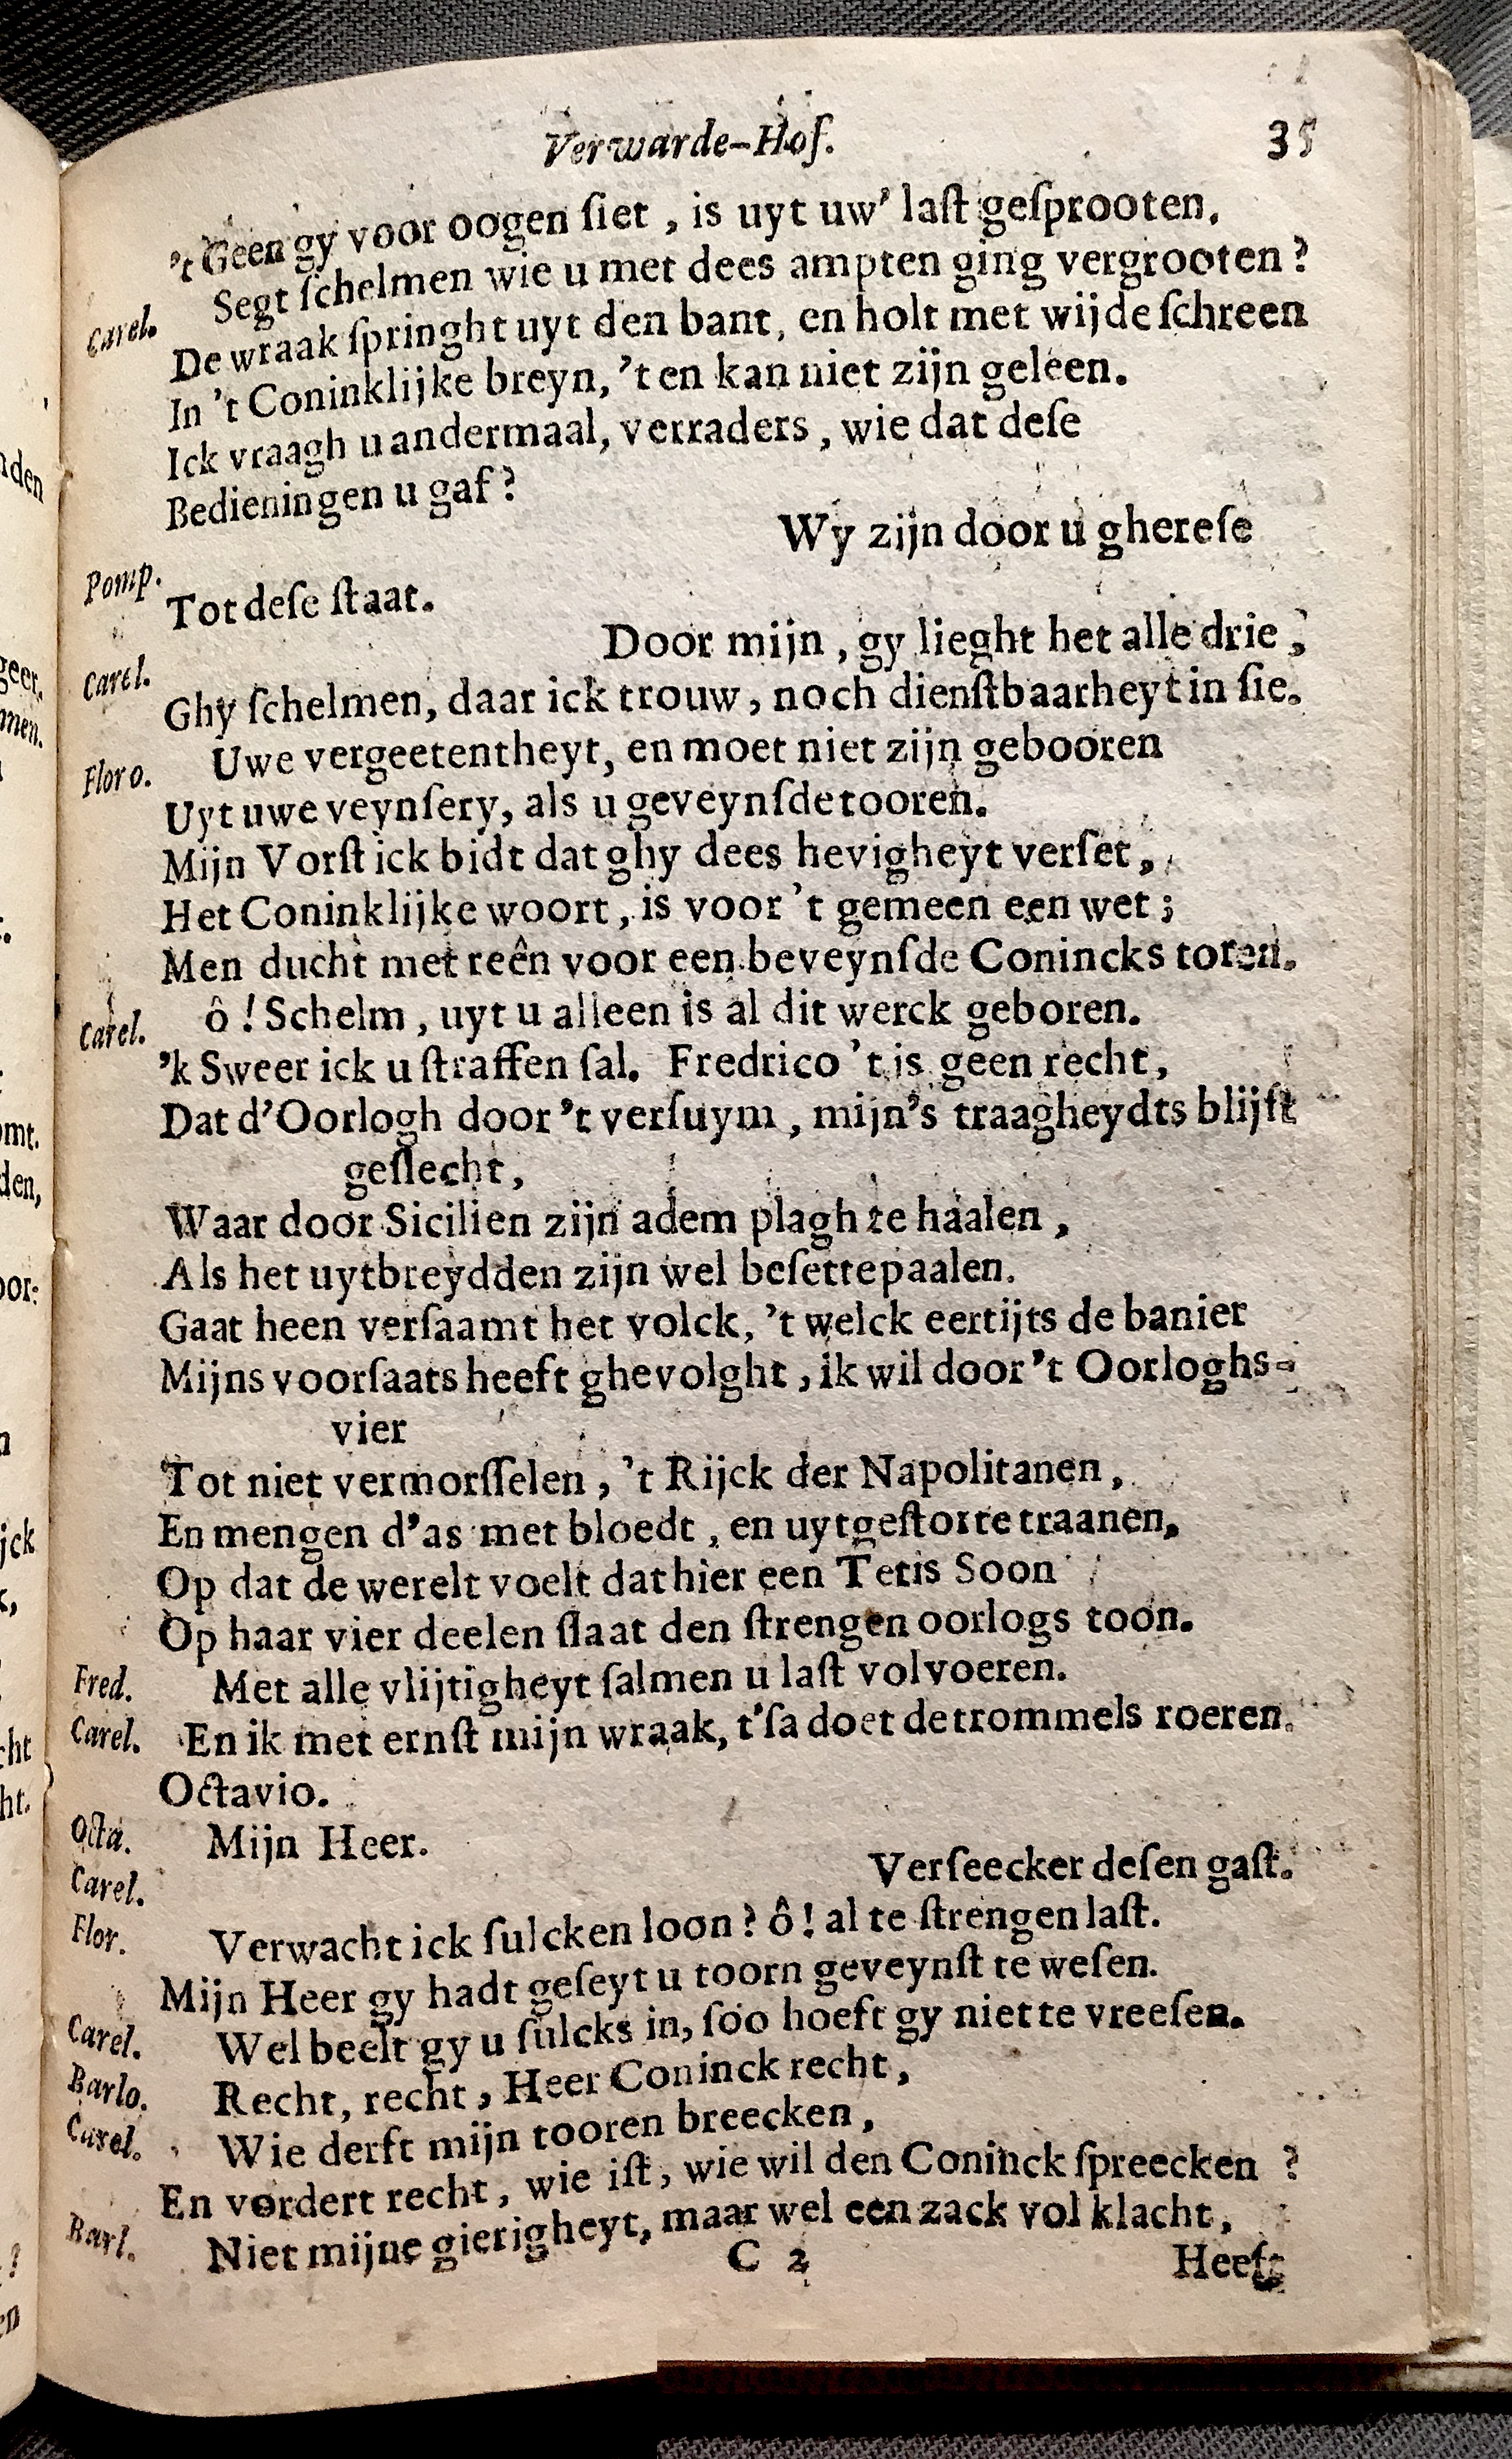 Verwarde-Hof. 35
't Geen gy voor oogen siet, is uyt uw' last gesprooten.
Carel. Segt schelmen wie u met dees ampten ging vergrooten?
De wraak springht uyt den bant, en holt met wijde schreen
In 't Coninklijke breyn, 't en kan niet zijn geleen.
Ick vraagh u andermaal, verraders, wie dat dese
Bedieningen u gaf?
Pomp. Wy zijn door u gherese
Tot dese staat.
Carel. Door mijn, gy lieght het alle drie,
Ghy schelmen, daar ick trouw, noch dienstbaarheyt in sie.
Floro. Uwe vergeetentheyt, en moet niet zijn gebooren
Uyt uwe veynsery, als u geveynsde tooren.
Mijn Vorst ick bidt dat ghy dees hevigheyt verset,
Het Coninklijke woort, is voor 't gemeen een wet;
Men ducht met reên voor een beveynsde Conincks toren.
Carel. ô! Schelm, uyt u alleen is al dit werck geboren.
'k Sweer ick u straffen sal. Fredrico 't is geen recht,
Dat d'Oorlogh door 't versuym, mijn's traagheydts blijft
geslecht,
Waar door Sicilien zijn adem plagh te haalen,
Als het uytbreydden zijn wel besette paalen.
Gaat heen versaamt het volck, 't welck eertijts de banier
Mijns voorsaats heeft ghevolght, ik wil door 't Oorloghs-
vier
Tot niet vermorsselen, 't Rijck der Napolitanen,
En mengen d'as met bloedt, en uytgestorte traanen,
Op dat de werelt voelt dat hier een Tetis Soon
Op haar vier deelen slaat den strengen oorlogs toon.
Fred. Met alle vlijtigheyt salmen u last volvoeren.
Carel. En ik met ernst mijn wraak, t'sa doet de trommels roeren.
Octavio.
Octa. Mijn Heer.
Carel. Verseecker desen gast.
Flor. Verwacht ick sulcken loon? ô! al te strengen last.
Mijn Heer gy hadt geseyt u toorn geveynst te wesen.
Carel. Wel beelt gy u sulcks in, soo hoeft gy niet te vreesen.
Barlo. Recht, recht, Heer Coninck recht,
Carel. Wie derft mijn tooren breecken,
En vordert recht, wie ist, wie wil den Coninck spreecken ?
Barl. Niet mijne gierigheyt, maar wel een zack vol klacht,
C 2 Heeft